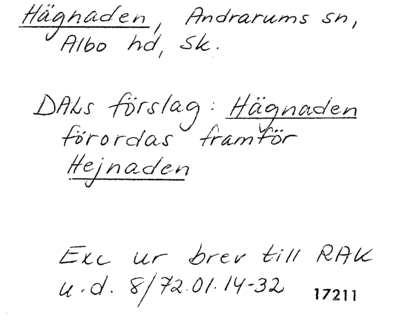 Hägnaden, Andrarums sn,
Albo hd, Sk.
DALs förslag: Hägnaden
förordas framför
Hejnaden
Exc ur brev till RAK
u.d. 8/72.01.14-32 17211